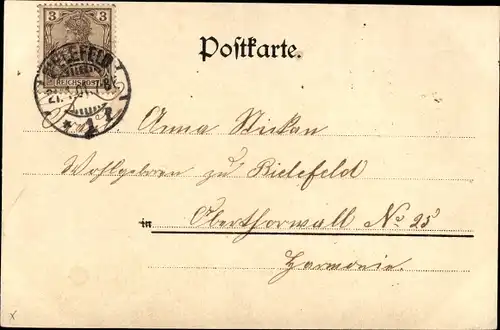 3 3
REICHSPOST
BIELEFELD
1
Postkarte.
Anna Stickan
Wohlgeboren zu Bielefeld
in Oberthorwall No 25
Harmonie.
x